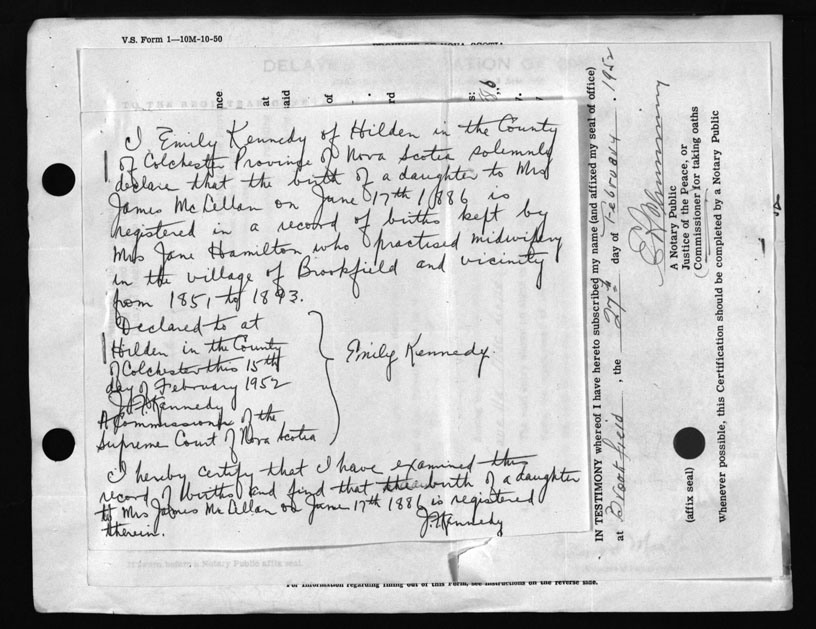 V.S. Form 1—10M-10-50
I Emily Kennedy of Hilden in the County
of Colchester Province of Nova Scotia solemnly
declare that the birth of a daughter to Mrs
James McLellan on June 17th 1886 is
registered in a record of births kept by
Mrs Jane Hamilton who practised midwifery
in the village of Brookfield and vicinity
from 1851 to 1893.
Declared to at
Hilden in the County
of Colchester this 15th
day of February 1952
J. F. Kennedy
A Commissioner of the
Supreme Court of Nova Scotia
Emily Kennedy
I hereby certify that I have examined the
record of births and find that the birth of a daughter
to Mrs James McLellan on June 17th 1886 is registered
therein.
J. F. Kennedy
nce
at
said
of
rd
s:
IN TESTIMONY whereof I have hereto subscribed my name (and affixed my seal of office)
at Brookfield, the 27th day of February, 1952
A Notary Public
Justice of the Peace, or
(Commissioner for taking oaths
(affix seal)
Whenever possible, this Certification should be completed by a Notary Public
If sworn before a Notary Public affix seal
For information regarding filling out of this Form, see instructions on the reverse side.